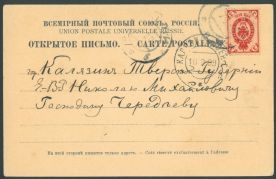 ВСЕМІРНЫЙ ПОЧТОВЫЙ СОЮЗЪ. РОССІЯ.
UNION POSTALE UNIVERSELLE. RUSSIE.
ОТКРЫТОЕ ПИСЬМО. — CARTE POSTALE.
гр. Калязинъ Тверской Губерніи
Е.В.Р. Николаю Михайловичу
Господину
На этой сторонѣ пишется только адресъ. — Ce côté est réservé exclusivement à l'adresse